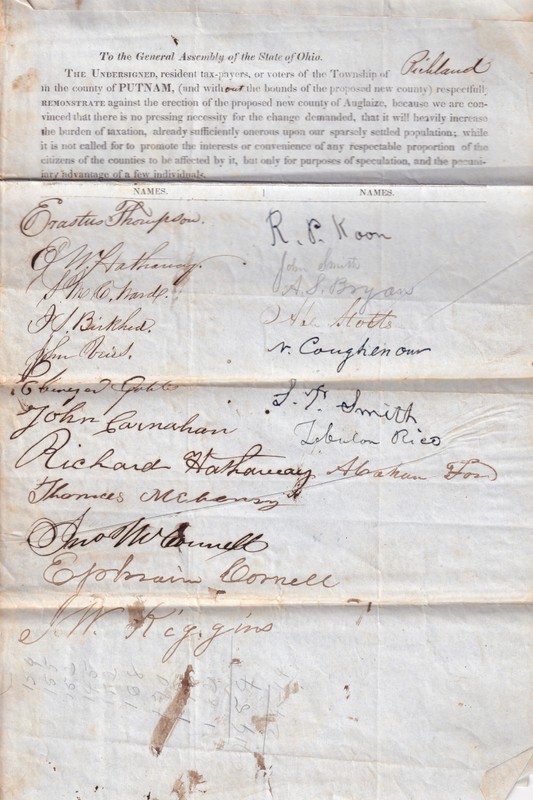 To the General Assembly of the State of Ohio.
THE UNDERSIGNED, resident tax-payers, or voters of the Township of Richland
in the county of PUTNAM, (and without the bounds of the proposed new county) respectfull
REMONSTRATE against the erection of the proposed new county of Auglaize, because we are con-
vinced that there is no pressing necessity for the change demanded, that it will heavily increase
the burden of taxation, already sufficiently onerous upon our sparsely settled population; while
it is not called for to promote the interests or convenience of any respectable proportion of the
citizens of the counties to be affected by it, but only for purposes of speculation, and the pecuni-
ary advantage of a few individuals.
NAMES. NAMES.
Erastus Thompson.
W. Hathaway.
Ward.
Birkhed.
John
Ebenezer
John Carnahan
Richard Hathaway
Thomas McHenry
Jno McConnell
Ephraim Cornell
W. Kiggins
R. P. Koon
John Smith
A. S. Bryans
Stotts
N. Coughenour
Smith
Zebulon Rice
Abraham Ford